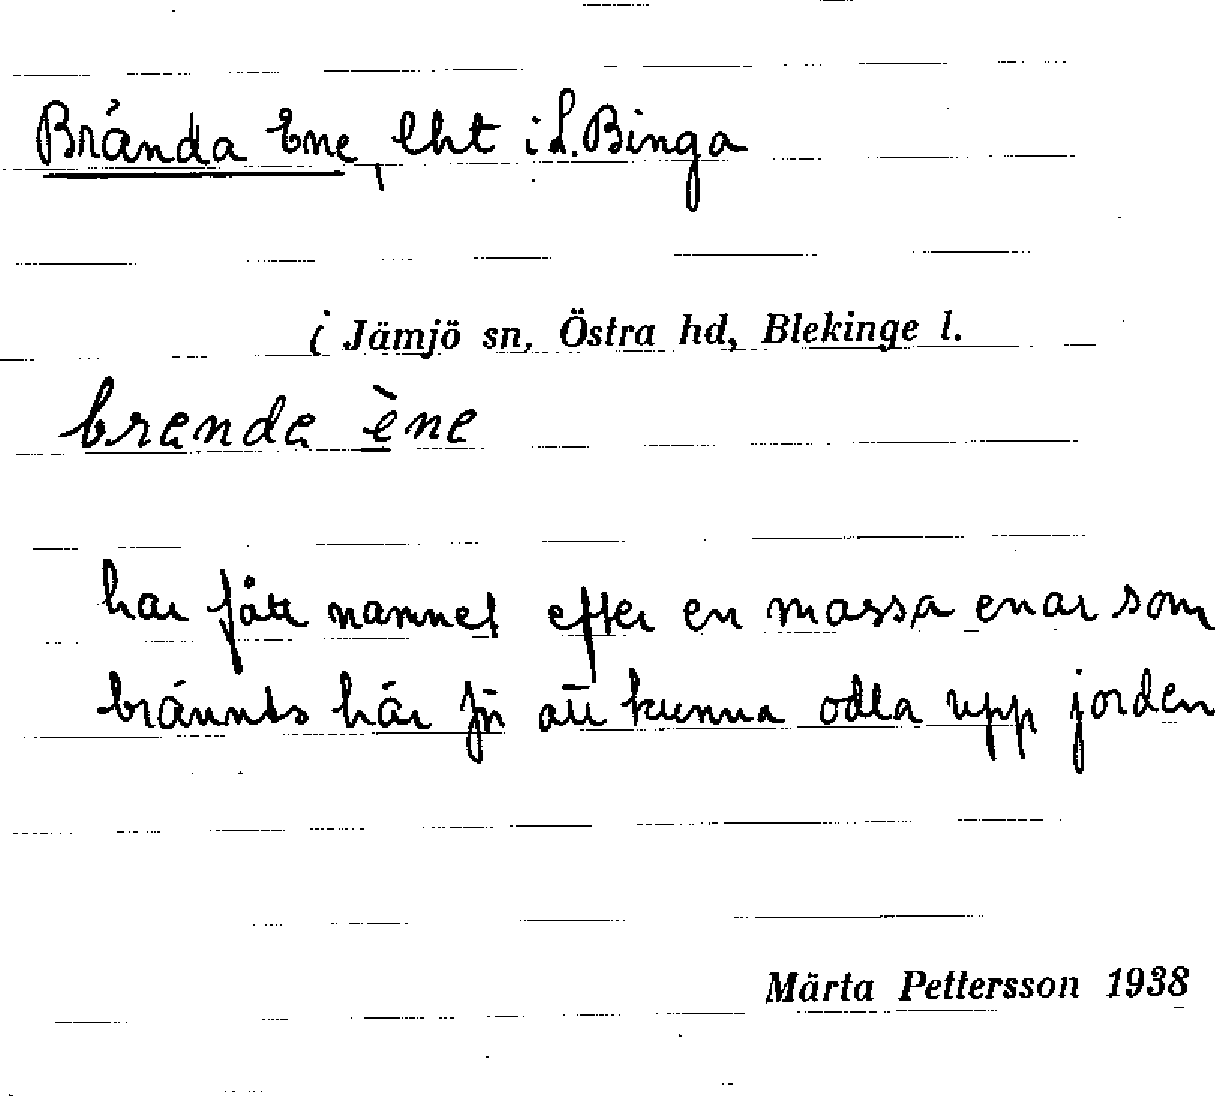 Brända Ene, lht i L. Binga
i Jämjö sn, Östra hd, Blekinge l.
brenda ène
har fått namnet efter en massa enar som
brännts här för att kunna odla upp jorden
Märta Pettersson 1938